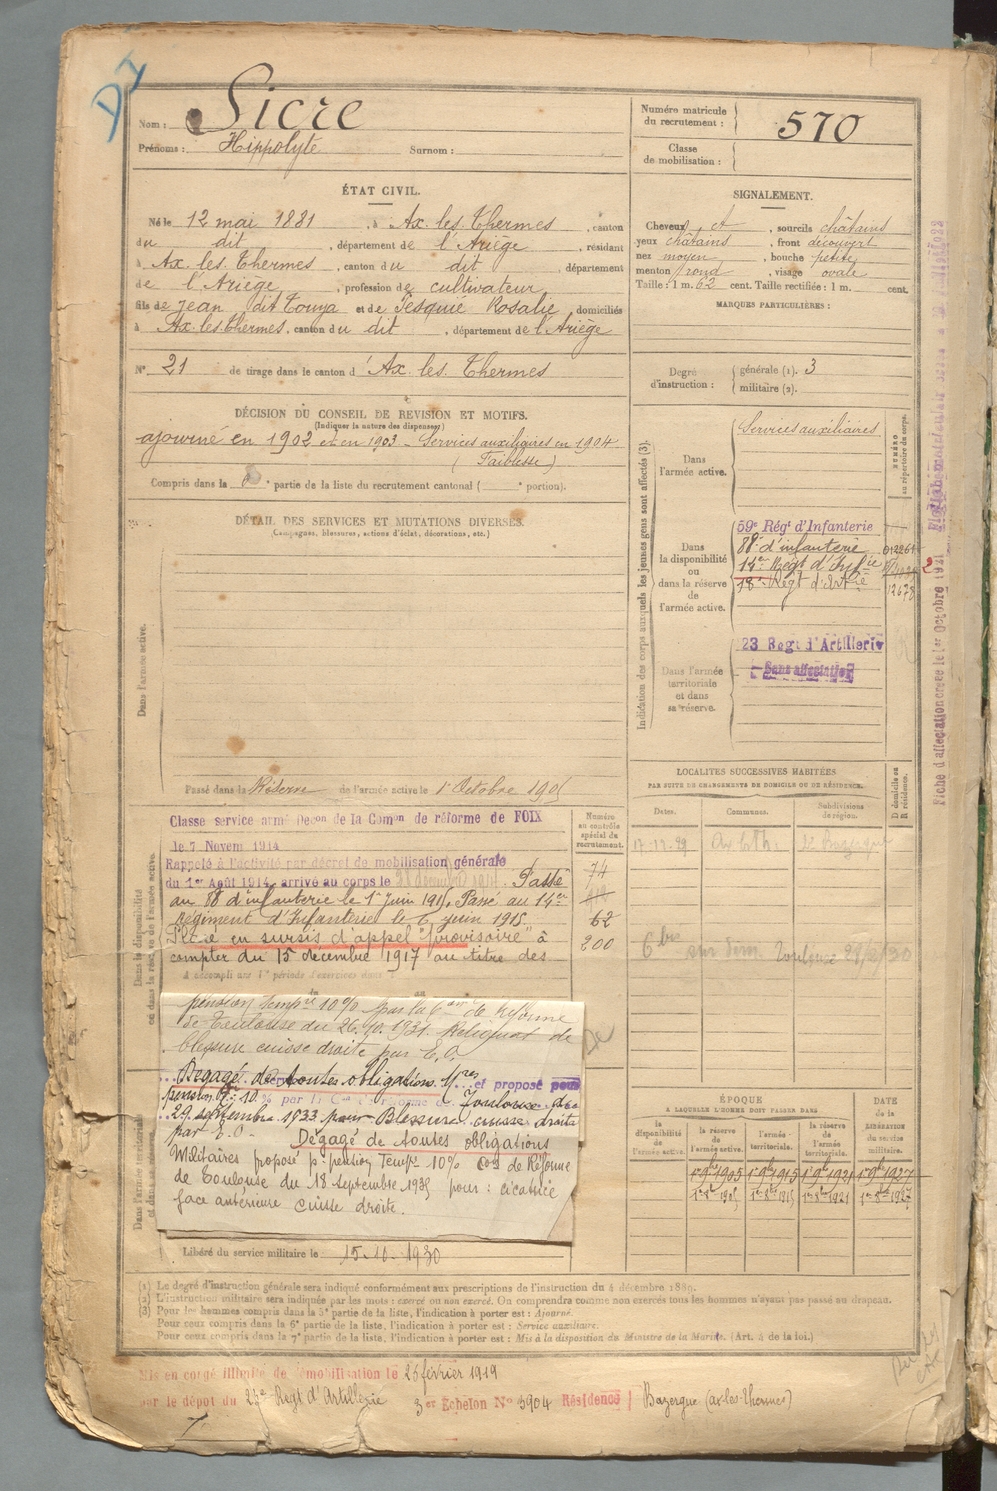 DI
Nom : Sicre
Prénoms : Hippolyte Surnom :
Numéro matricule du recrutement : 570
Classe de mobilisation :
ÉTAT CIVIL.
Né le 12 mai 1881, à Ax. les. Thermes, canton
du dit, département de l'Ariège, résidant
à Ax. les. Thermes, canton du dit, département
de l'Ariège, profession de cultivateur,
fils de Jean dit Touza et de Pesquié Rosalie, domiciliés
à Ax les Thermes, canton du dit, département de l'Ariège
N° 21 de tirage dans le canton d'Ax. les. Thermes
SIGNALEMENT.
Cheveux et, sourcils châtains
yeux châtains, front découvert
nez moyen, bouche petite
menton rond, visage ovale
Taille : 1 m. 62 cent. Taille rectifiée : 1 m. cent.
MARQUES PARTICULIÈRES :
Degré d'instruction :
générale (1). 3
militaire (2).
DÉCISION DU CONSEIL DE REVISION ET MOTIFS.
(Indiquer la nature des dispenses)
ajourné en 1902 et en 1903 - Services auxiliaires en 1904
(Faiblesse)
Compris dans la partie de la liste du recrutement cantonal ( portion).
DÉTAIL DES SERVICES ET MUTATIONS DIVERSES.
(Campagnes, blessures, actions d'éclat, décorations, etc.)
Dans l'armée active.
Passé dans la Réserve de l'armée active le 1er Octobre 1905
Indication des corps auxquels les jeunes gens sont affectés (3).
NUMÉRO au répertoire du corps.
Dans l'armée active.
Services auxiliaires
Dans la disponibilité ou dans la réserve de l'armée active.
59e Régt d'Infanterie
88e d'infanterie
14e Régt d'Infie
18e Régt d'Artie
12678
Dans l'armée territoriale et dans sa réserve.
23 Régt d'Artillerie
Sans affectation
LOCALITÉS SUCCESSIVES HABITÉES
PAR SUITE DE CHANGEMENTS DE DOMICILE OU DE RÉSIDENCE.
Dates. Communes. Subdivisions de région. D domicile ou R résidence.
Classe service armé Décon de la Comon de réforme de FOIX
le 7 Novem 1914
Rappelé à l'activité par décret de mobilisation générale
du 1er Août 1914, arrivé au corps le Passé
au 88 d'infanterie le 1er Juin 1915. Passé au 14e
Régiment d'Infanterie le 6 juin 1915.
en sursis d'appel "provisoire" à
compter du 15 décembre 1917 au titre des
Numéro au contrôle spécial du recrutement.
74
62
200
pension tempre 10% par la Con de Réforme
de Toulouse du 26.10.1931. Reliquat de
blessure cuisse droite par E.O.
Dégagé de toutes obligations Mres et proposé pour
pension 10 % par la Con de Réforme de Toulouse du
29 septembre 1933 pour Blessure cuisse droite
par E.O - Dégagé de toutes obligations
Militaires proposé p. pension Tempre 10% Con de Réforme
de Toulouse du 18 Septembre 1935 pour : cicatrice
face antérieure cuisse droite.
Libéré du service militaire le 15-10-1930
ÉPOQUE
A LAQUELLE L'HOMME DOIT PASSER DANS
la disponibilité de l'armée active. la réserve de l'armée active. l'armée territoriale. la réserve de l'armée territoriale.
DATE de la LIBÉRATION du service militaire.
1er 9bre 1905 1er 9bre 1915 1er 9bre 1921 1er 9bre 1927
1er 8bre 1905 1er 8bre 1915 1er 8bre 1921 1er 8bre 1927
(1) Le degré d'instruction générale sera indiqué conformément aux prescriptions de l'instruction du 4 décembre 1889.
(2) L'instruction militaire sera indiquée par les mots : exercé ou non exercé. On comprendra comme non exercés tous les hommes n'ayant pas passé au drapeau.
(3) Pour les hommes compris dans la 5e partie de la liste, l'indication à porter est : Ajourné.
Pour ceux compris dans la 6e partie de la liste, l'indication à porter est : Service auxiliaire.
Pour ceux compris dans la 7e partie de la liste, l'indication à porter est : Mis à la disposition du Ministre de la Marine. (Art. 4 de la loi.)
Mis en congé illimité de démobilisation le 25 février 1919
par le dépôt du 23e Régt d'Artillerie 3er Echelon N° 3904 Résidence Bazergue (ax-les-thermes)